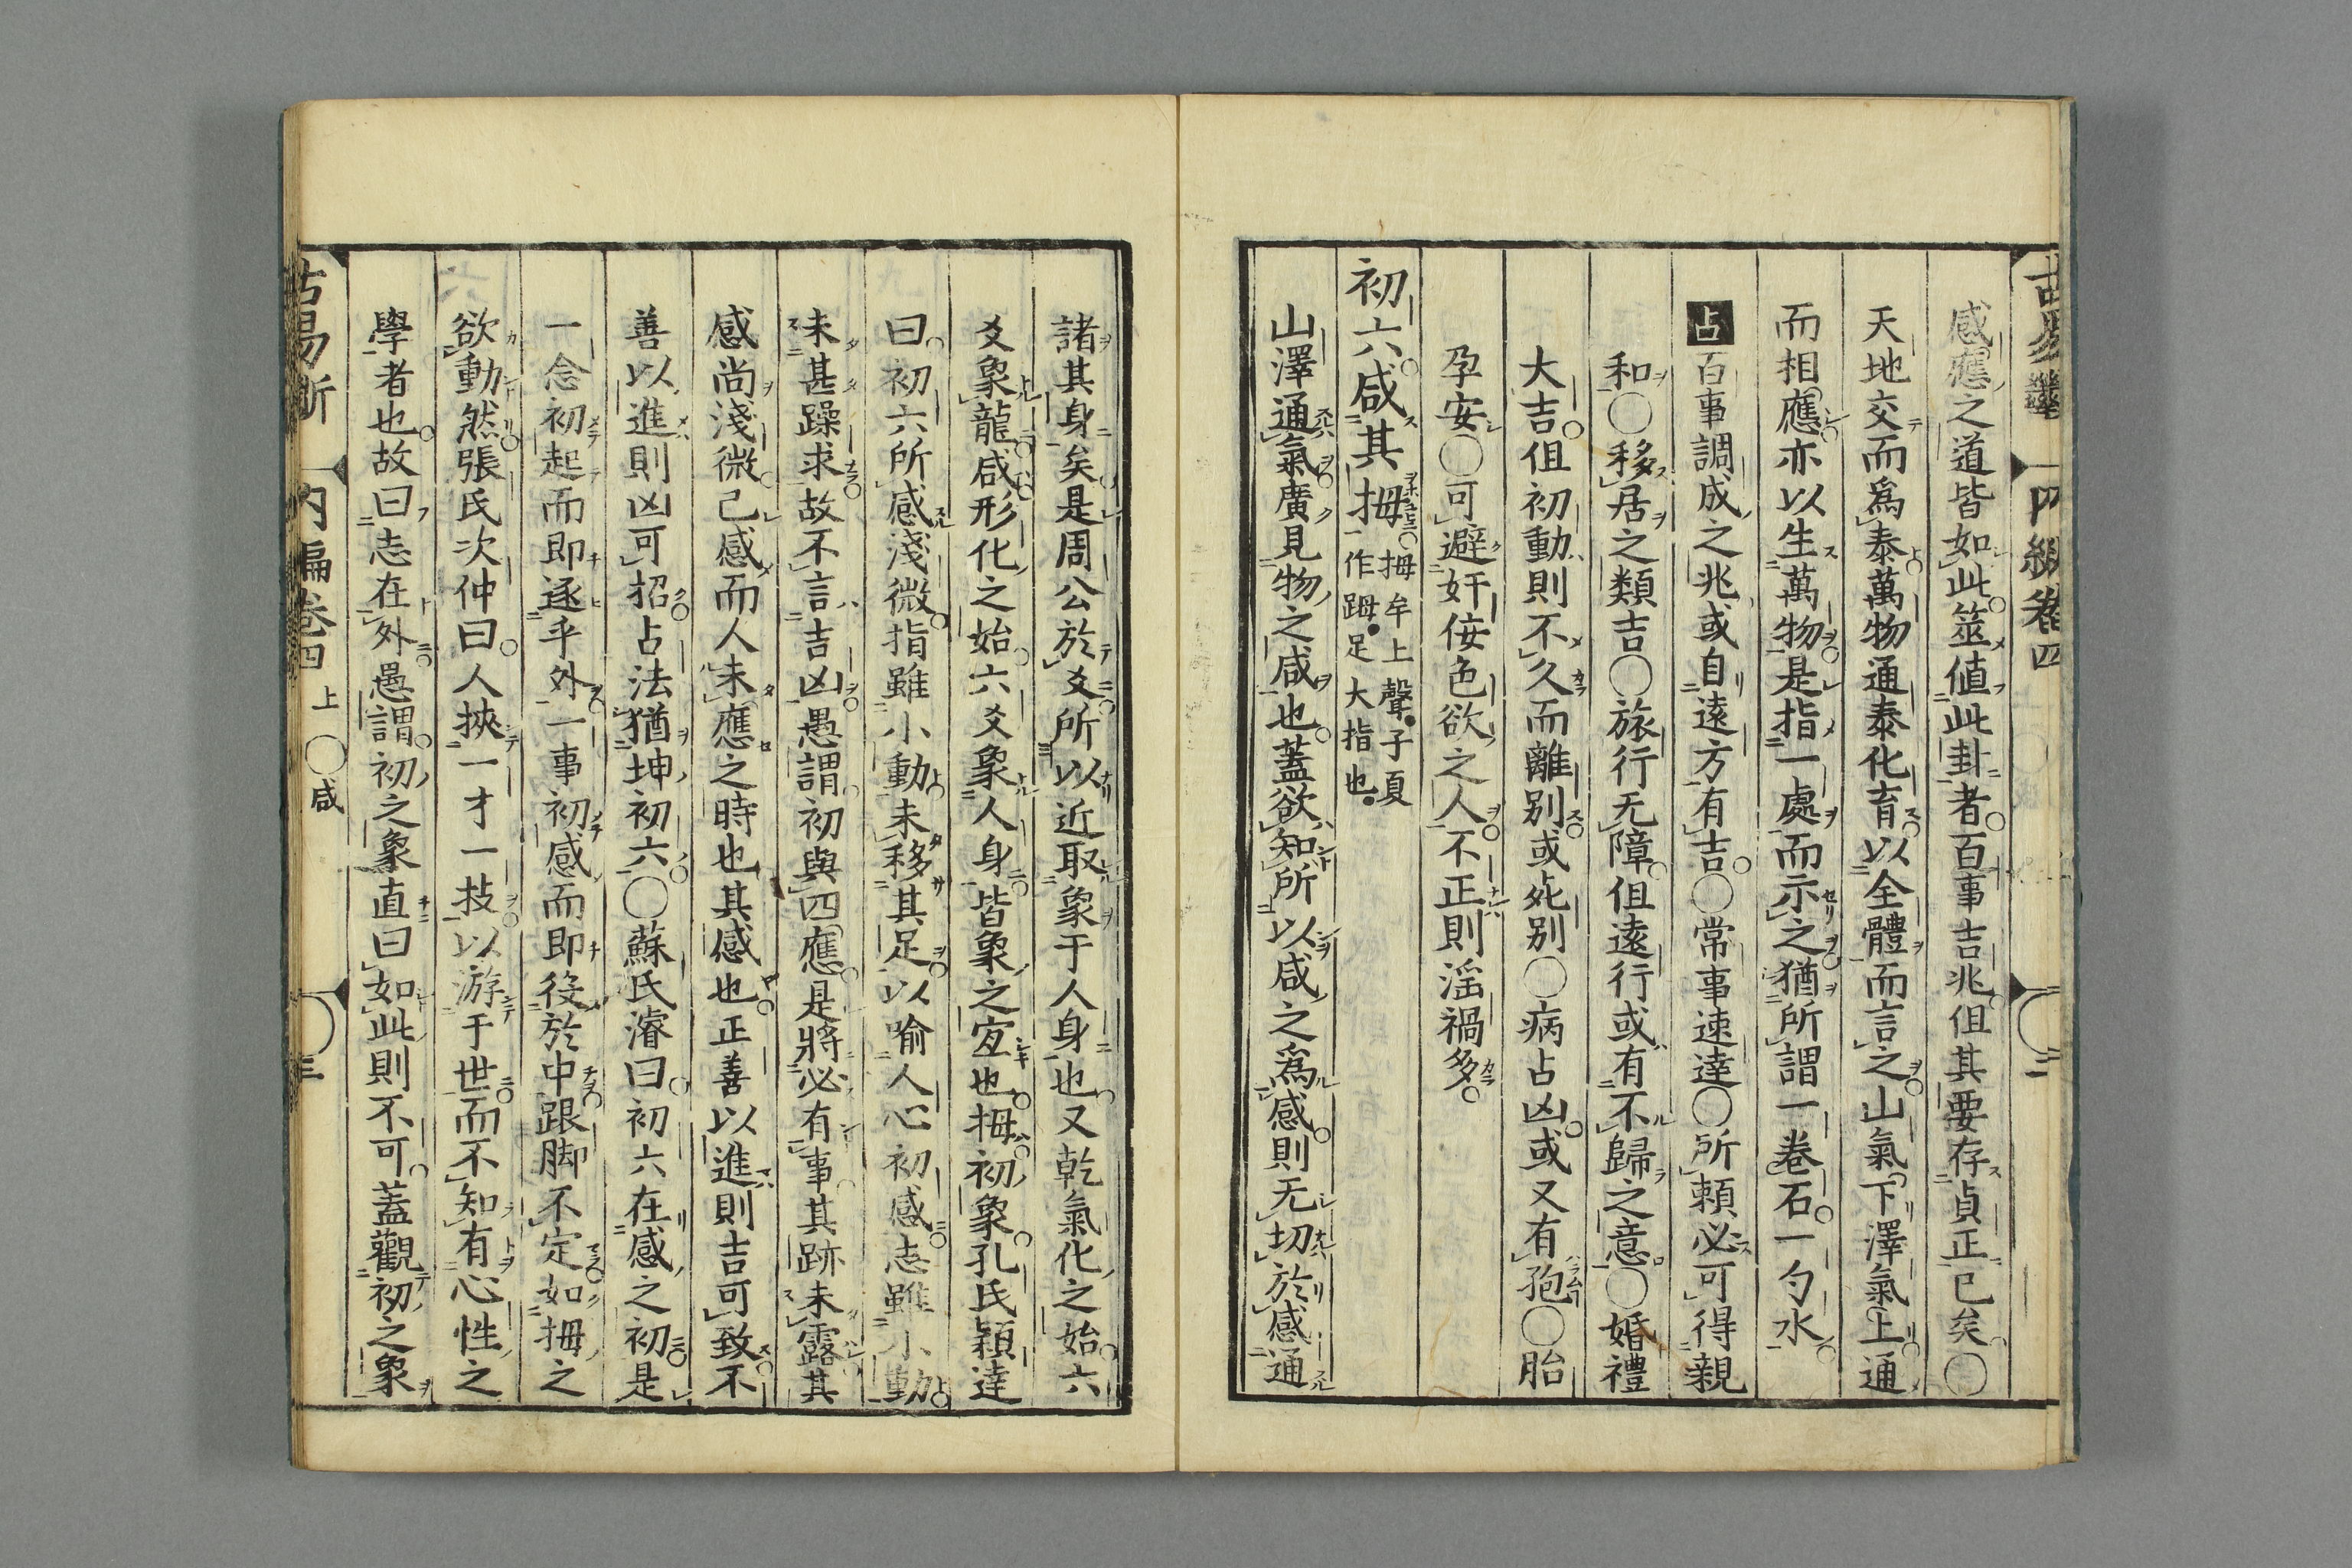 感應之道皆如此筮值此卦者百事吉兆但其要存貞正已矣○
天地交而爲泰萬物通泰化育以全體而言之山氣下澤氣上通
而相應亦以生萬物是指一處而示之猶所謂一卷石一勺水
占百事調成之兆或自遠方有吉○常事速達○所頼必可得親
和○移居之類吉○旅行无障但遠行或有不歸之意○婚禮
大吉但初動則不久而離别或死别○病占凶或又有孢○胎
孕安○可避奸侫色欲之人不正則滛禍多
初六咸其拇拇牟上聲子夏
一作踇足大指也
山澤通氣廣見物之咸也蓋欲知所以咸之爲感則无切於感通
諸其身矣是周公於爻所以近取象于人身也又乾氣化之始六
爻象龍咸形化之始六爻象人身皆象之冝也拇初象孔氏穎達
曰初六所感淺微指雖小動未移其足以喻人心初感志雖小動
未甚躁求故不言吉凶愚謂初與四應是將必有事其跡未露其
感尚淺微己感而人未應之時也其感也正善以進則吉可致不
善以進則凶可招占法猶坤初六○蘇氏濬曰初六在感之初是
一念初起而即逐乎外一事初感而即役於中跟脚不定如拇之
欲動然張氏次仲曰人挾一才一技以游于世而不知有心性之
學者也故曰志在外愚謂初之象直曰如此則不可蓋觀初之象
古易斷 内編卷四 上○咸 三